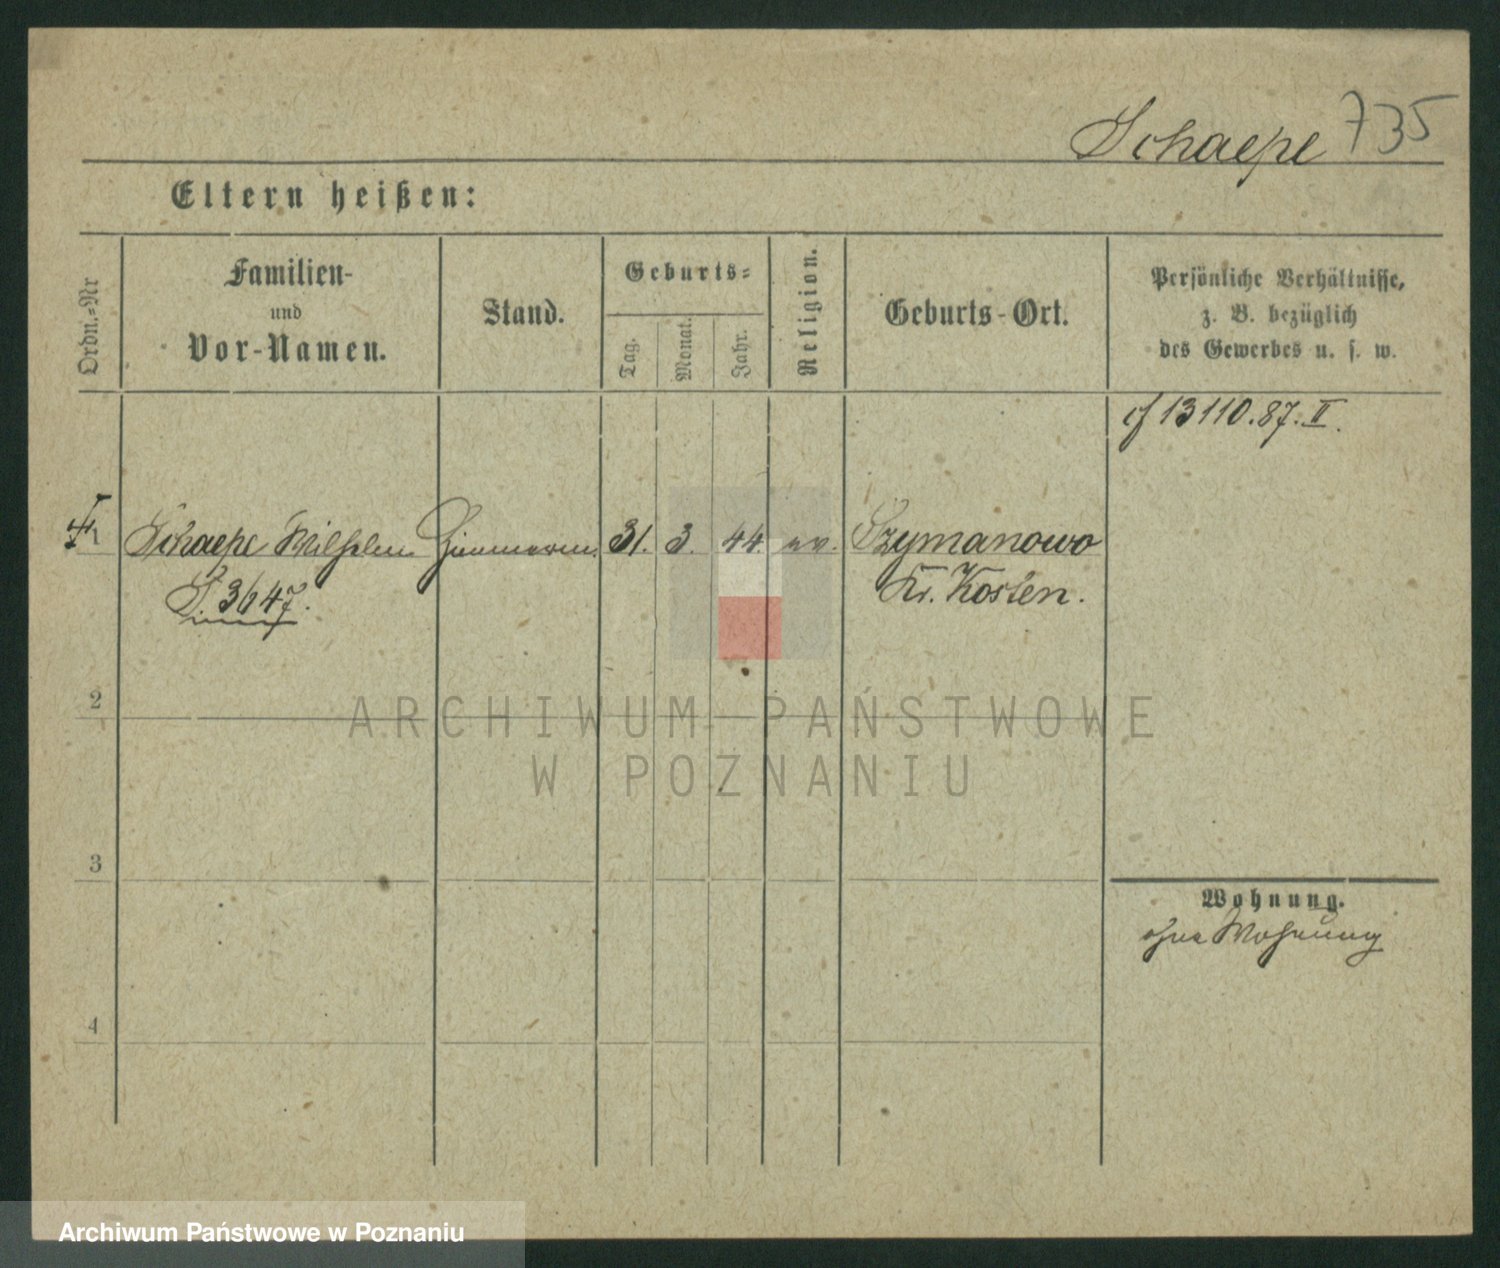 Schaepe 735
Eltern heißen:
Ordn.-Nr
Familien-
und
Vor-Namen.
Stand.
Geburts-
Tag.
Monat.
Jahr.
Religion.
Geburts-Ort.
Persönliche Verhältnisse,
z. B. bezüglich
des Gewerbes u. s. w.
cf 13110.87.II.
1 Schaepe Wilhelm Zimmerm. 31. 3. 44 ev. Szymanowo
S. 3647. Kr. Kosten.
2
ARCHIWUM PAŃSTWOWE
W POZNANIU
3
Wohnung.
ohne Wohnung
4
Archiwum Państwowe w Poznaniu